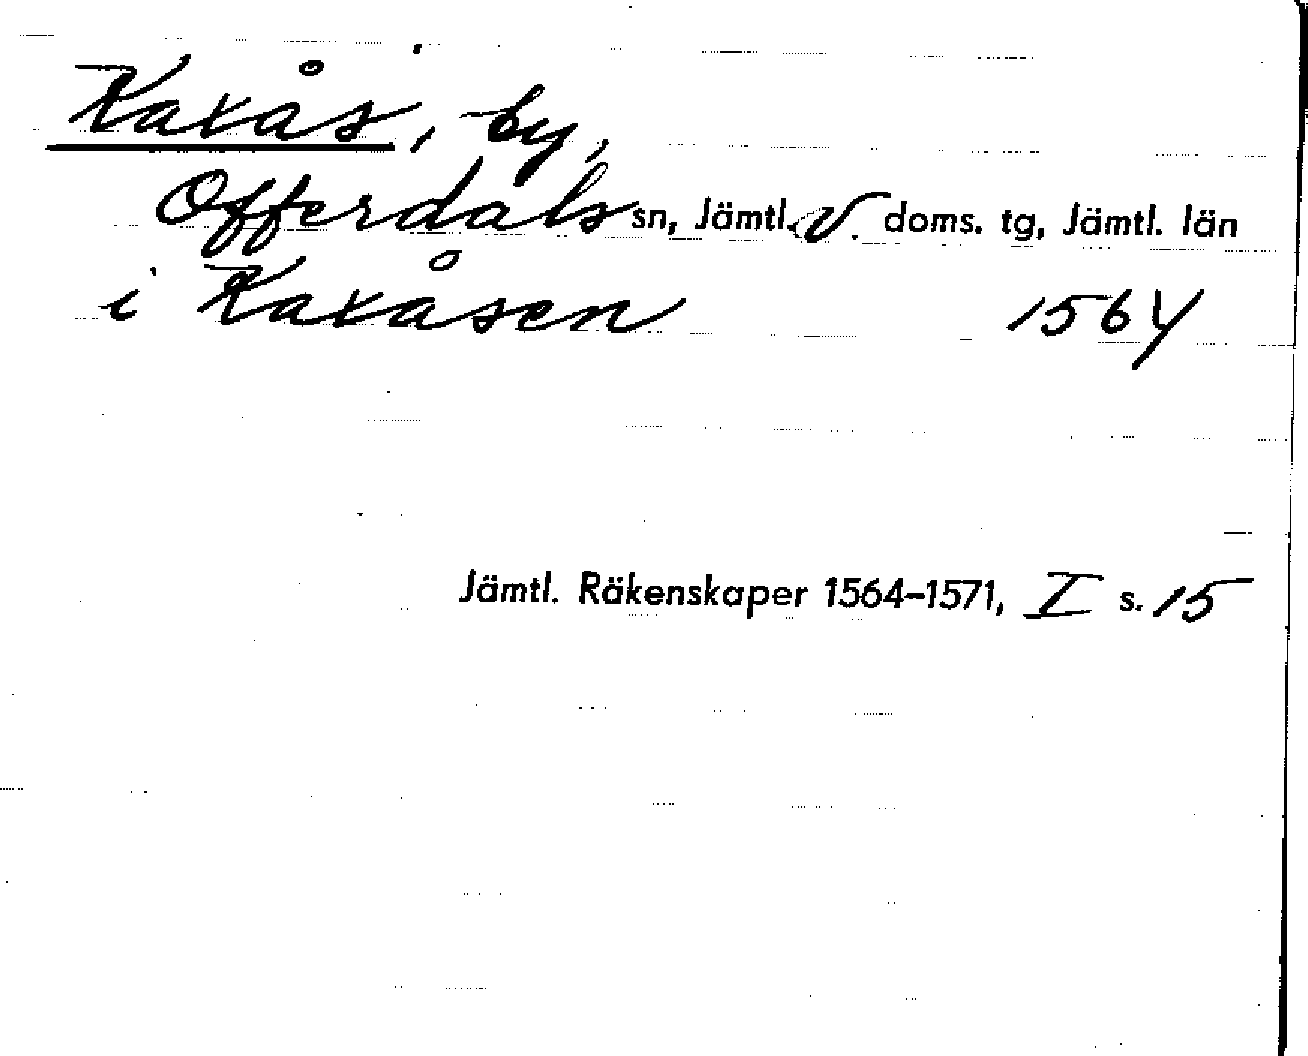 Kaxås, by,
Offerdals sn, Jämtl. V. doms. tg, Jämtl. län
i Kaxåsen 1564
Jämtl. Räkenskaper 1564–1571, I s. 15